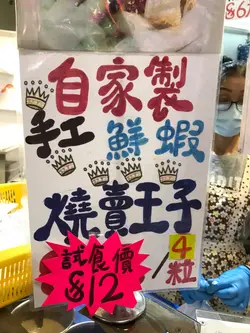 自家製
手工 鮮蝦
燒賣王子
試食價
$12 / 4粒